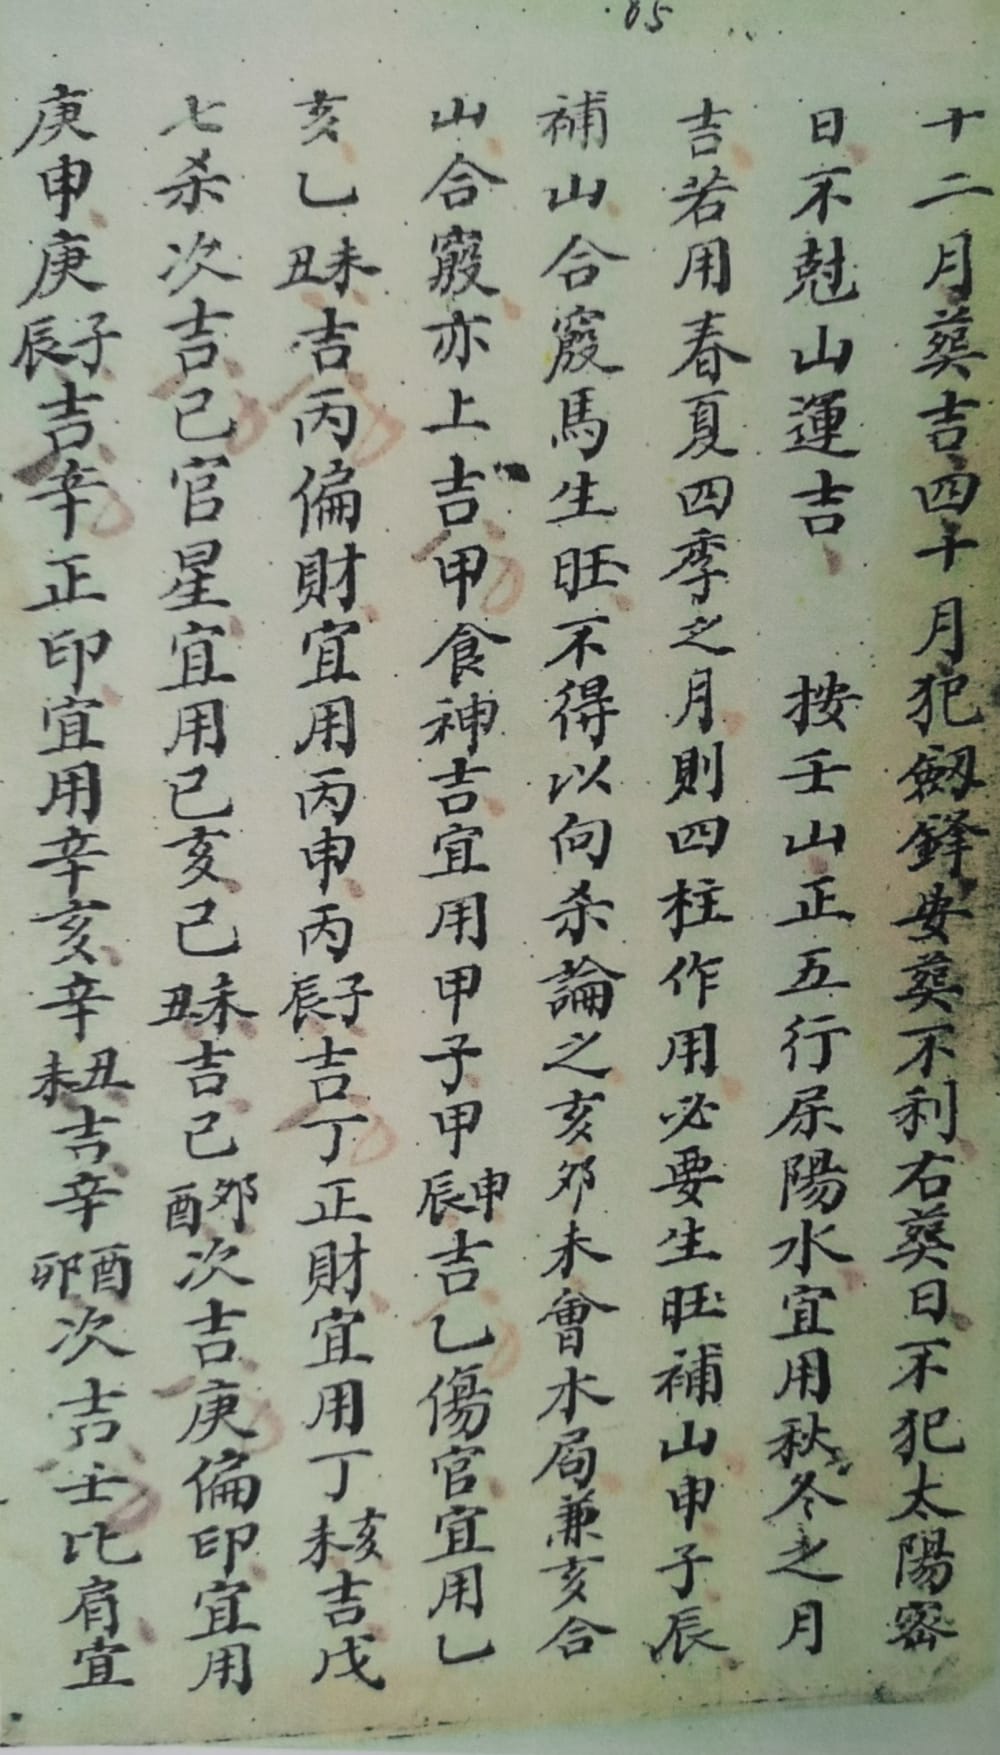 85
十二月葬吉四十月犯劔鋒安葬不利右葬日不犯太陽密
日不尅山運吉　按壬山正五行屬陽水宜用秋冬之月
吉若用春夏四季之月則四柱作用必要生旺補山申子辰
補山合窽馬生旺不得以向杀論之亥夘未會木局兼亥合
山合窽亦上吉甲食神吉宜用甲子甲申辰吉乙傷官宜用乙
亥乙未丑吉丙偏財宜用丙申丙子辰吉丁正財宜用丁亥未吉戊
七杀次吉己官星宜用己亥己未丑吉己夘酉次吉庚偏印宜用
庚申庚子辰吉辛正印宜用辛亥辛丑未吉辛酉卯次吉壬比肩宜